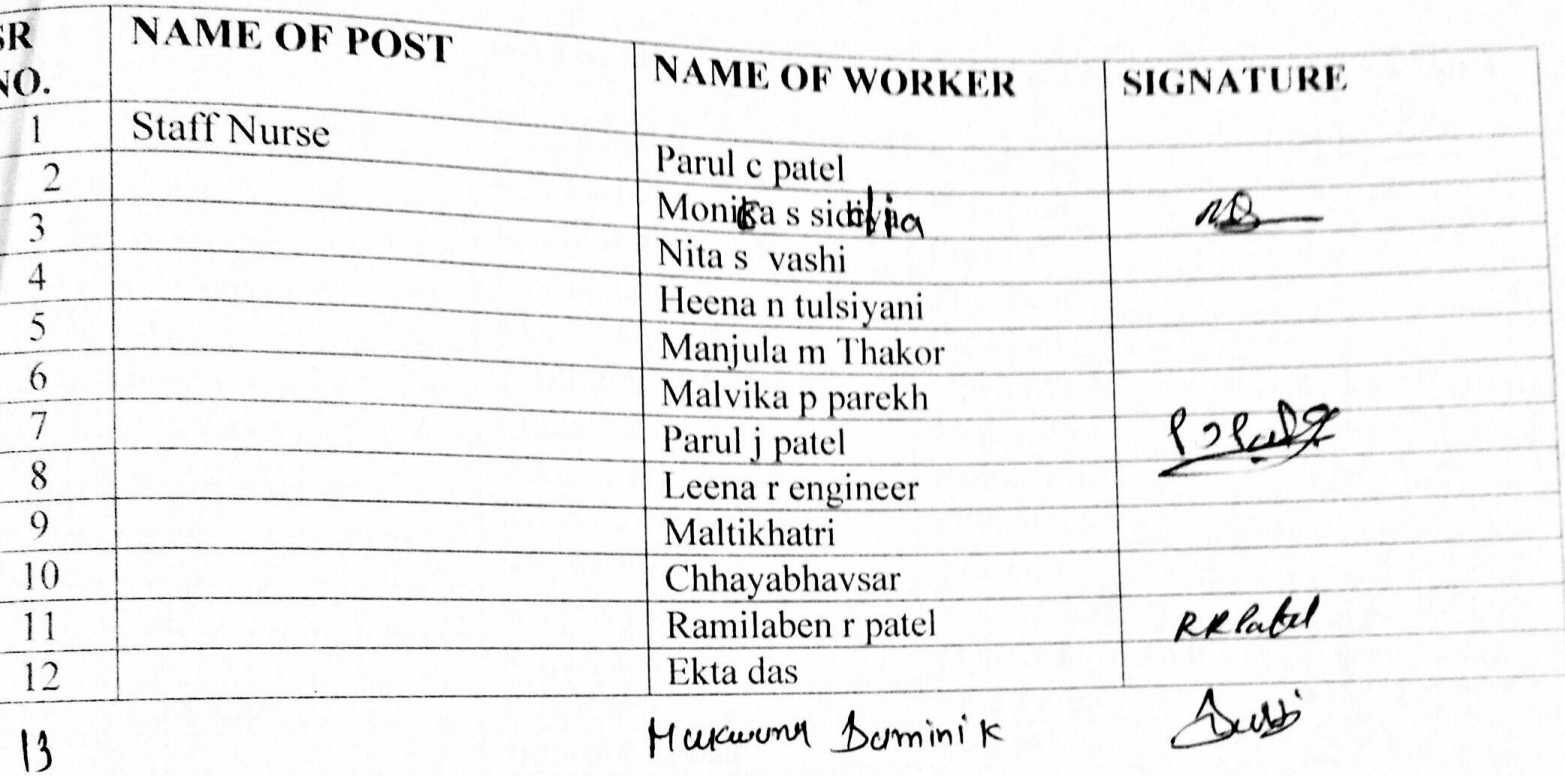 SR NO. NAME OF POST NAME OF WORKER SIGNATURE
1 Staff Nurse Parul c patel
2 Monika s
3 Nita s vashi
4 Heena n tulsiyani
5 Manjula m Thakor
6 Malvika p parekh
7 Parul j patel
8 Leena r engineer
9 Maltikhatri
10 Chhayabhavsar
11 Ramilaben r patel RRPatel
12 Ekta das
13 Dominik